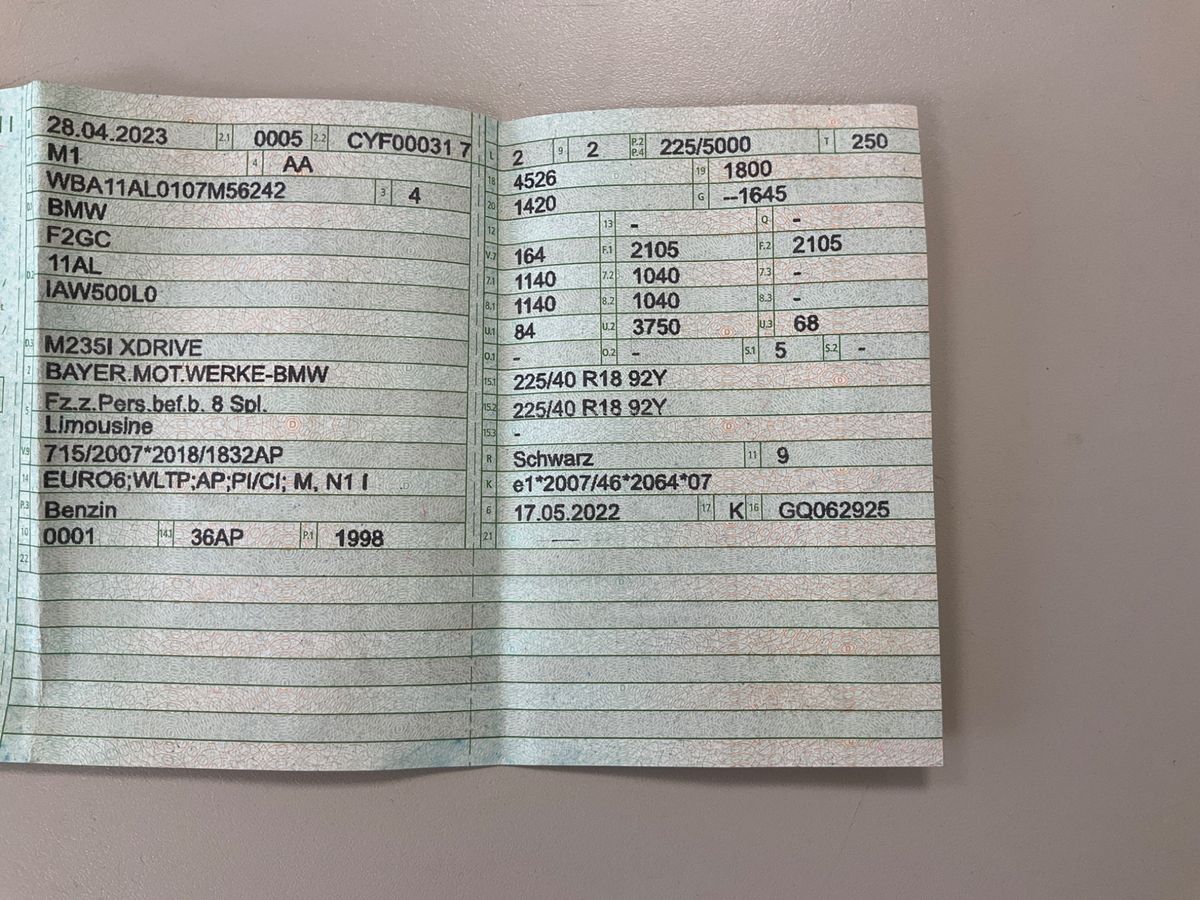 28.04.2023 2.1 0005 2.2 CYF00031 7
M1 4 AA
WBA11AL0107M56242 3 4
D.1 BMW
F2GC
D.2 11AL
IAW500L0
D.3 M235I XDRIVE
2 BAYER.MOT.WERKE-BMW
5 Fz.z.Pers.bef.b. 8 Spl.
Limousine
V.9 715/2007*2018/1832AP
14 EURO6;WLTP;AP;PI/CI; M, N1 I
P.3 Benzin
10 0001 14.1 36AP P.1 1998
22
L 2 9 2 P.2 P.4 225/5000 T 250
18 4526 19 1800
20 1420 G --1645
12 13 - Q -
V.7 164 F.1 2105 F.2 2105
7.1 1140 7.2 1040 7.3 -
8.1 1140 8.2 1040 8.3 -
U.1 84 U.2 3750 U.3 68
O.1 - O.2 - S.1 5 S.2 -
15.1 225/40 R18 92Y
15.2 225/40 R18 92Y
15.3 -
R Schwarz 11 9
K e1*2007/46*2064*07
6 17.05.2022 17 K 16 GQ062925
21 —